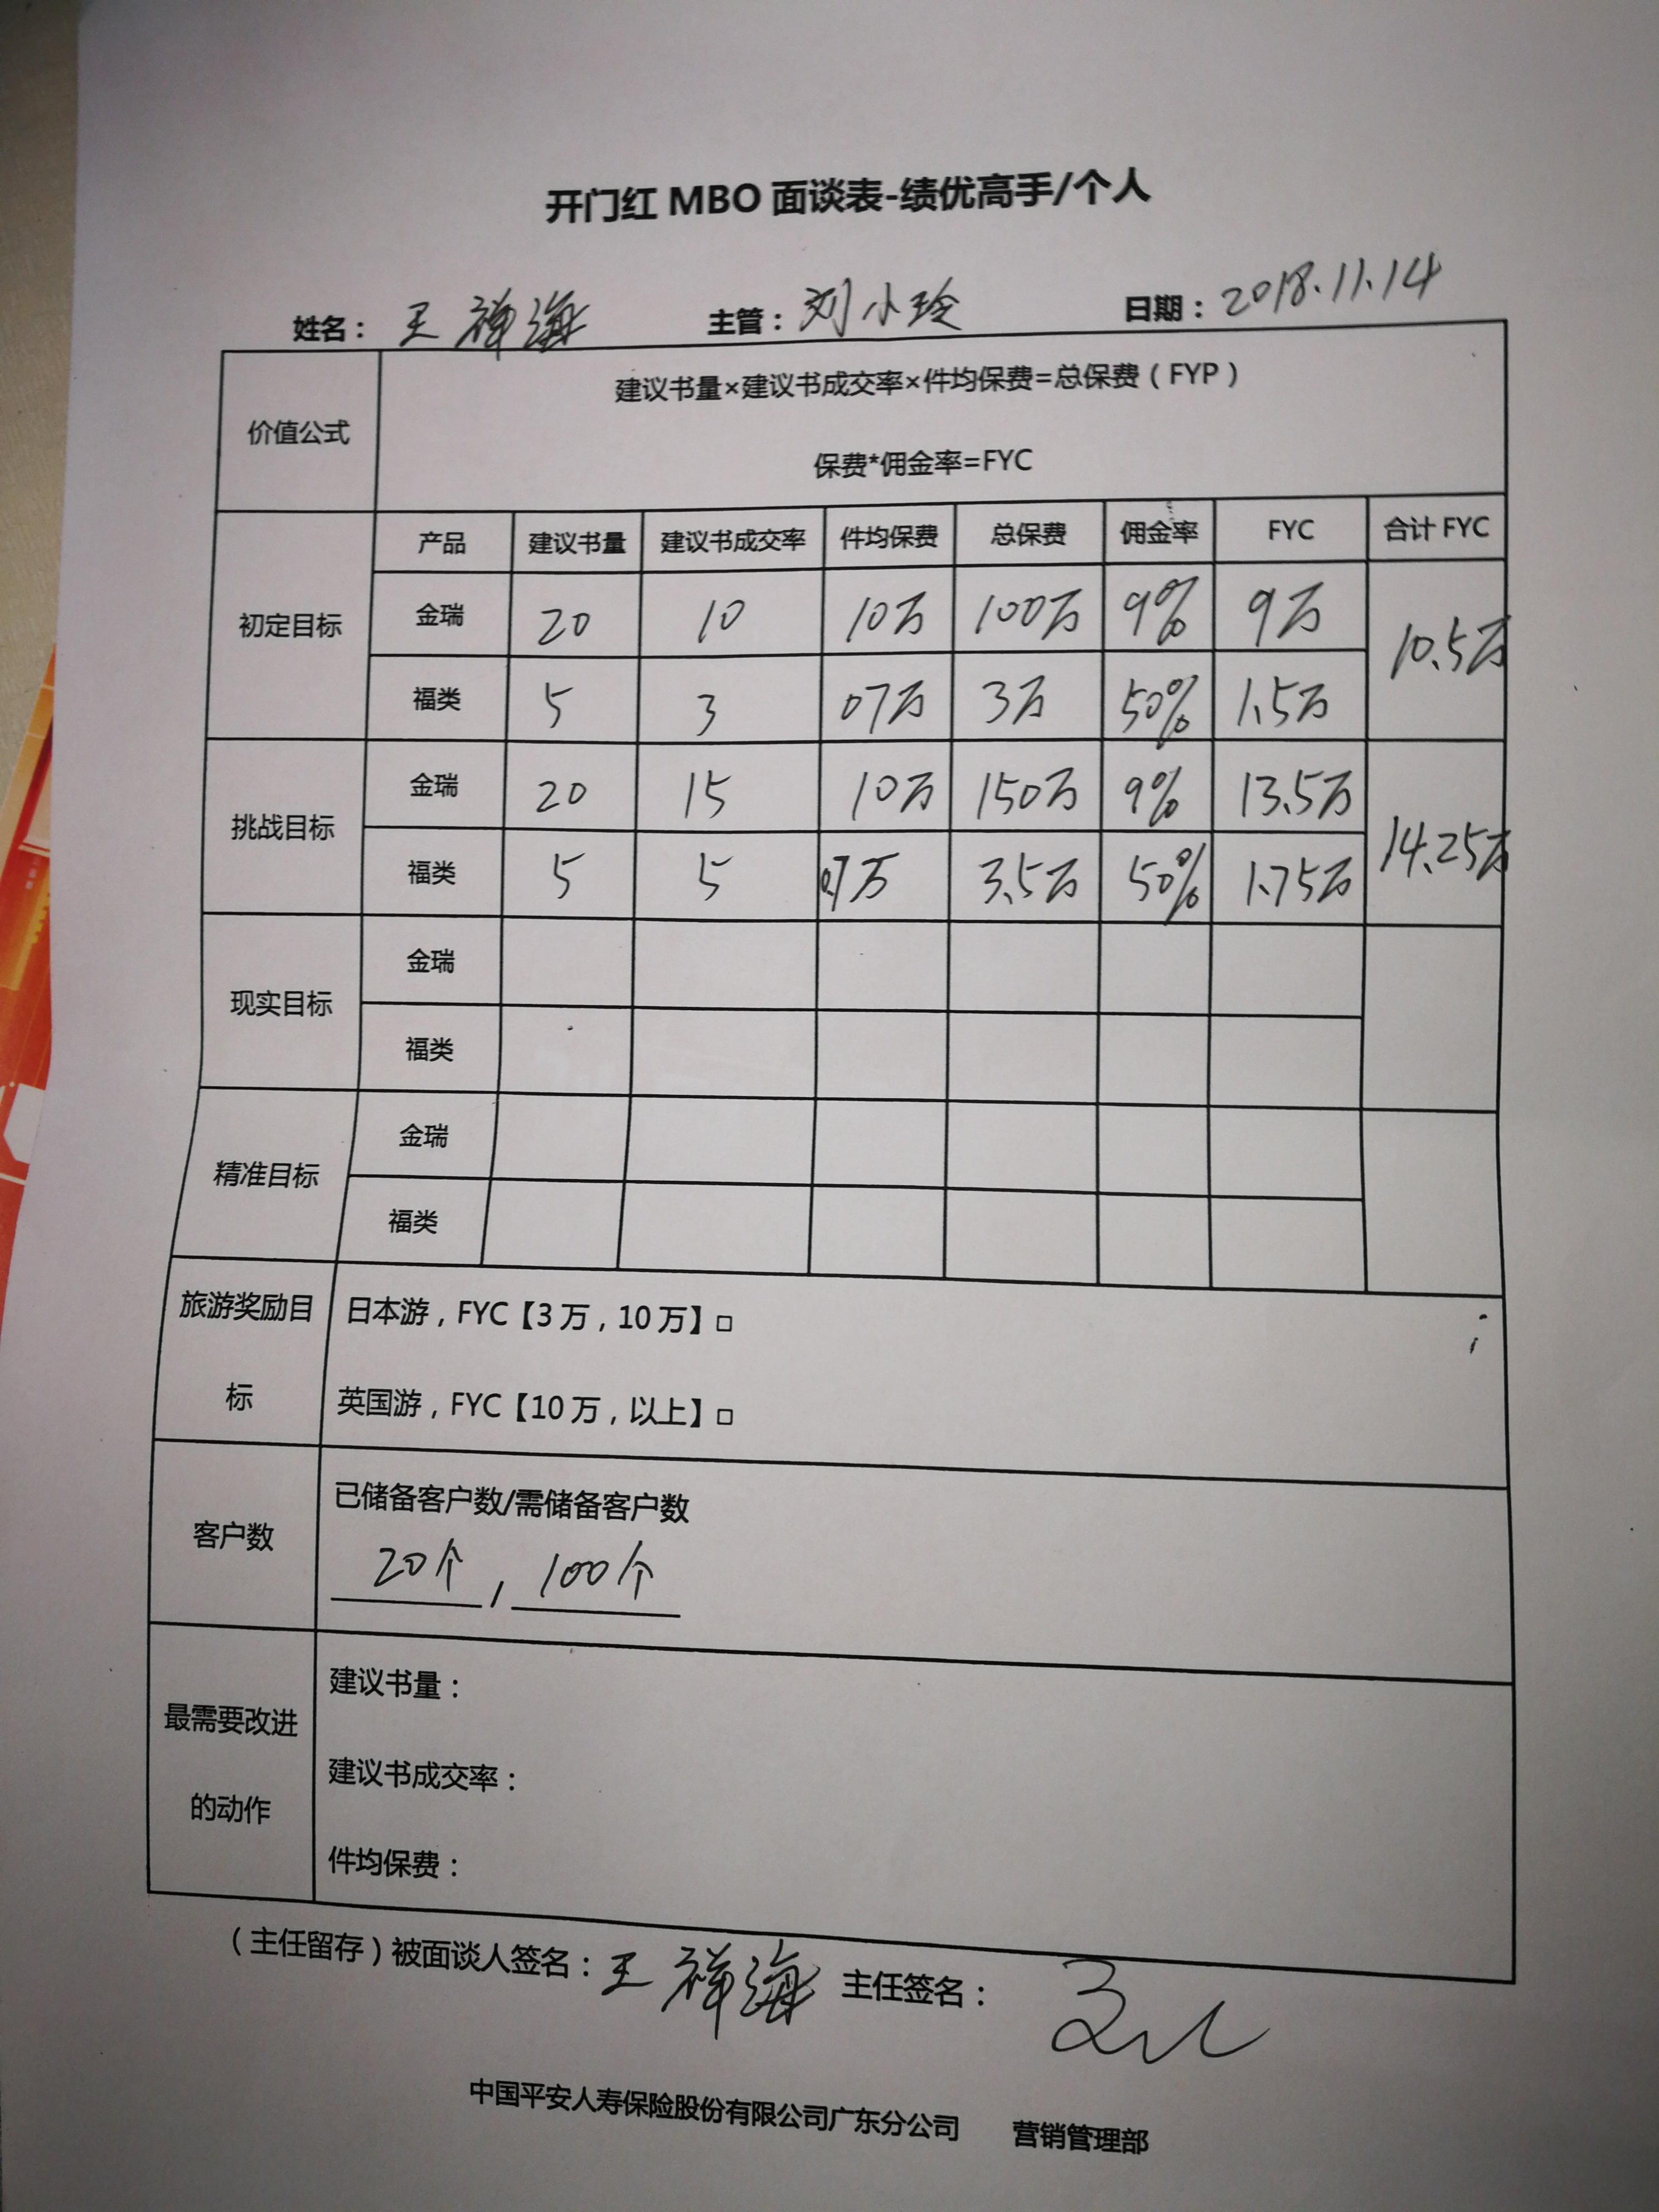 开门红 MBO 面谈表-绩优高手/个人
姓名： 王祥海 主管： 刘小玲 日期： 2018.11.14
价值公式
建议书量×建议书成交率×件均保费=总保费（FYP）
保费*佣金率=FYC
产品 建议书量 建议书成交率 件均保费 总保费 佣金率 FYC 合计 FYC
初定目标
金瑞 20 10 10万 100万 9% 9万
10.5万
福类 5 3 07万 3万 50% 1.5万
挑战目标
金瑞 20 15 10万 150万 9% 13.5万
14.25万
福类 5 5 0.7万 3.5万 50% 1.75万
现实目标
金瑞
福类
精准目标
金瑞
福类
旅游奖励目
标
日本游，FYC【3 万，10 万】□
英国游，FYC【10 万，以上】□
客户数
已储备客户数/需储备客户数
20个 , 100个
最需要改进
的动作
建议书量：
建议书成交率：
件均保费：
（主任留存）被面谈人签名：王祥海 主任签名：
中国平安人寿保险股份有限公司广东分公司 营销管理部